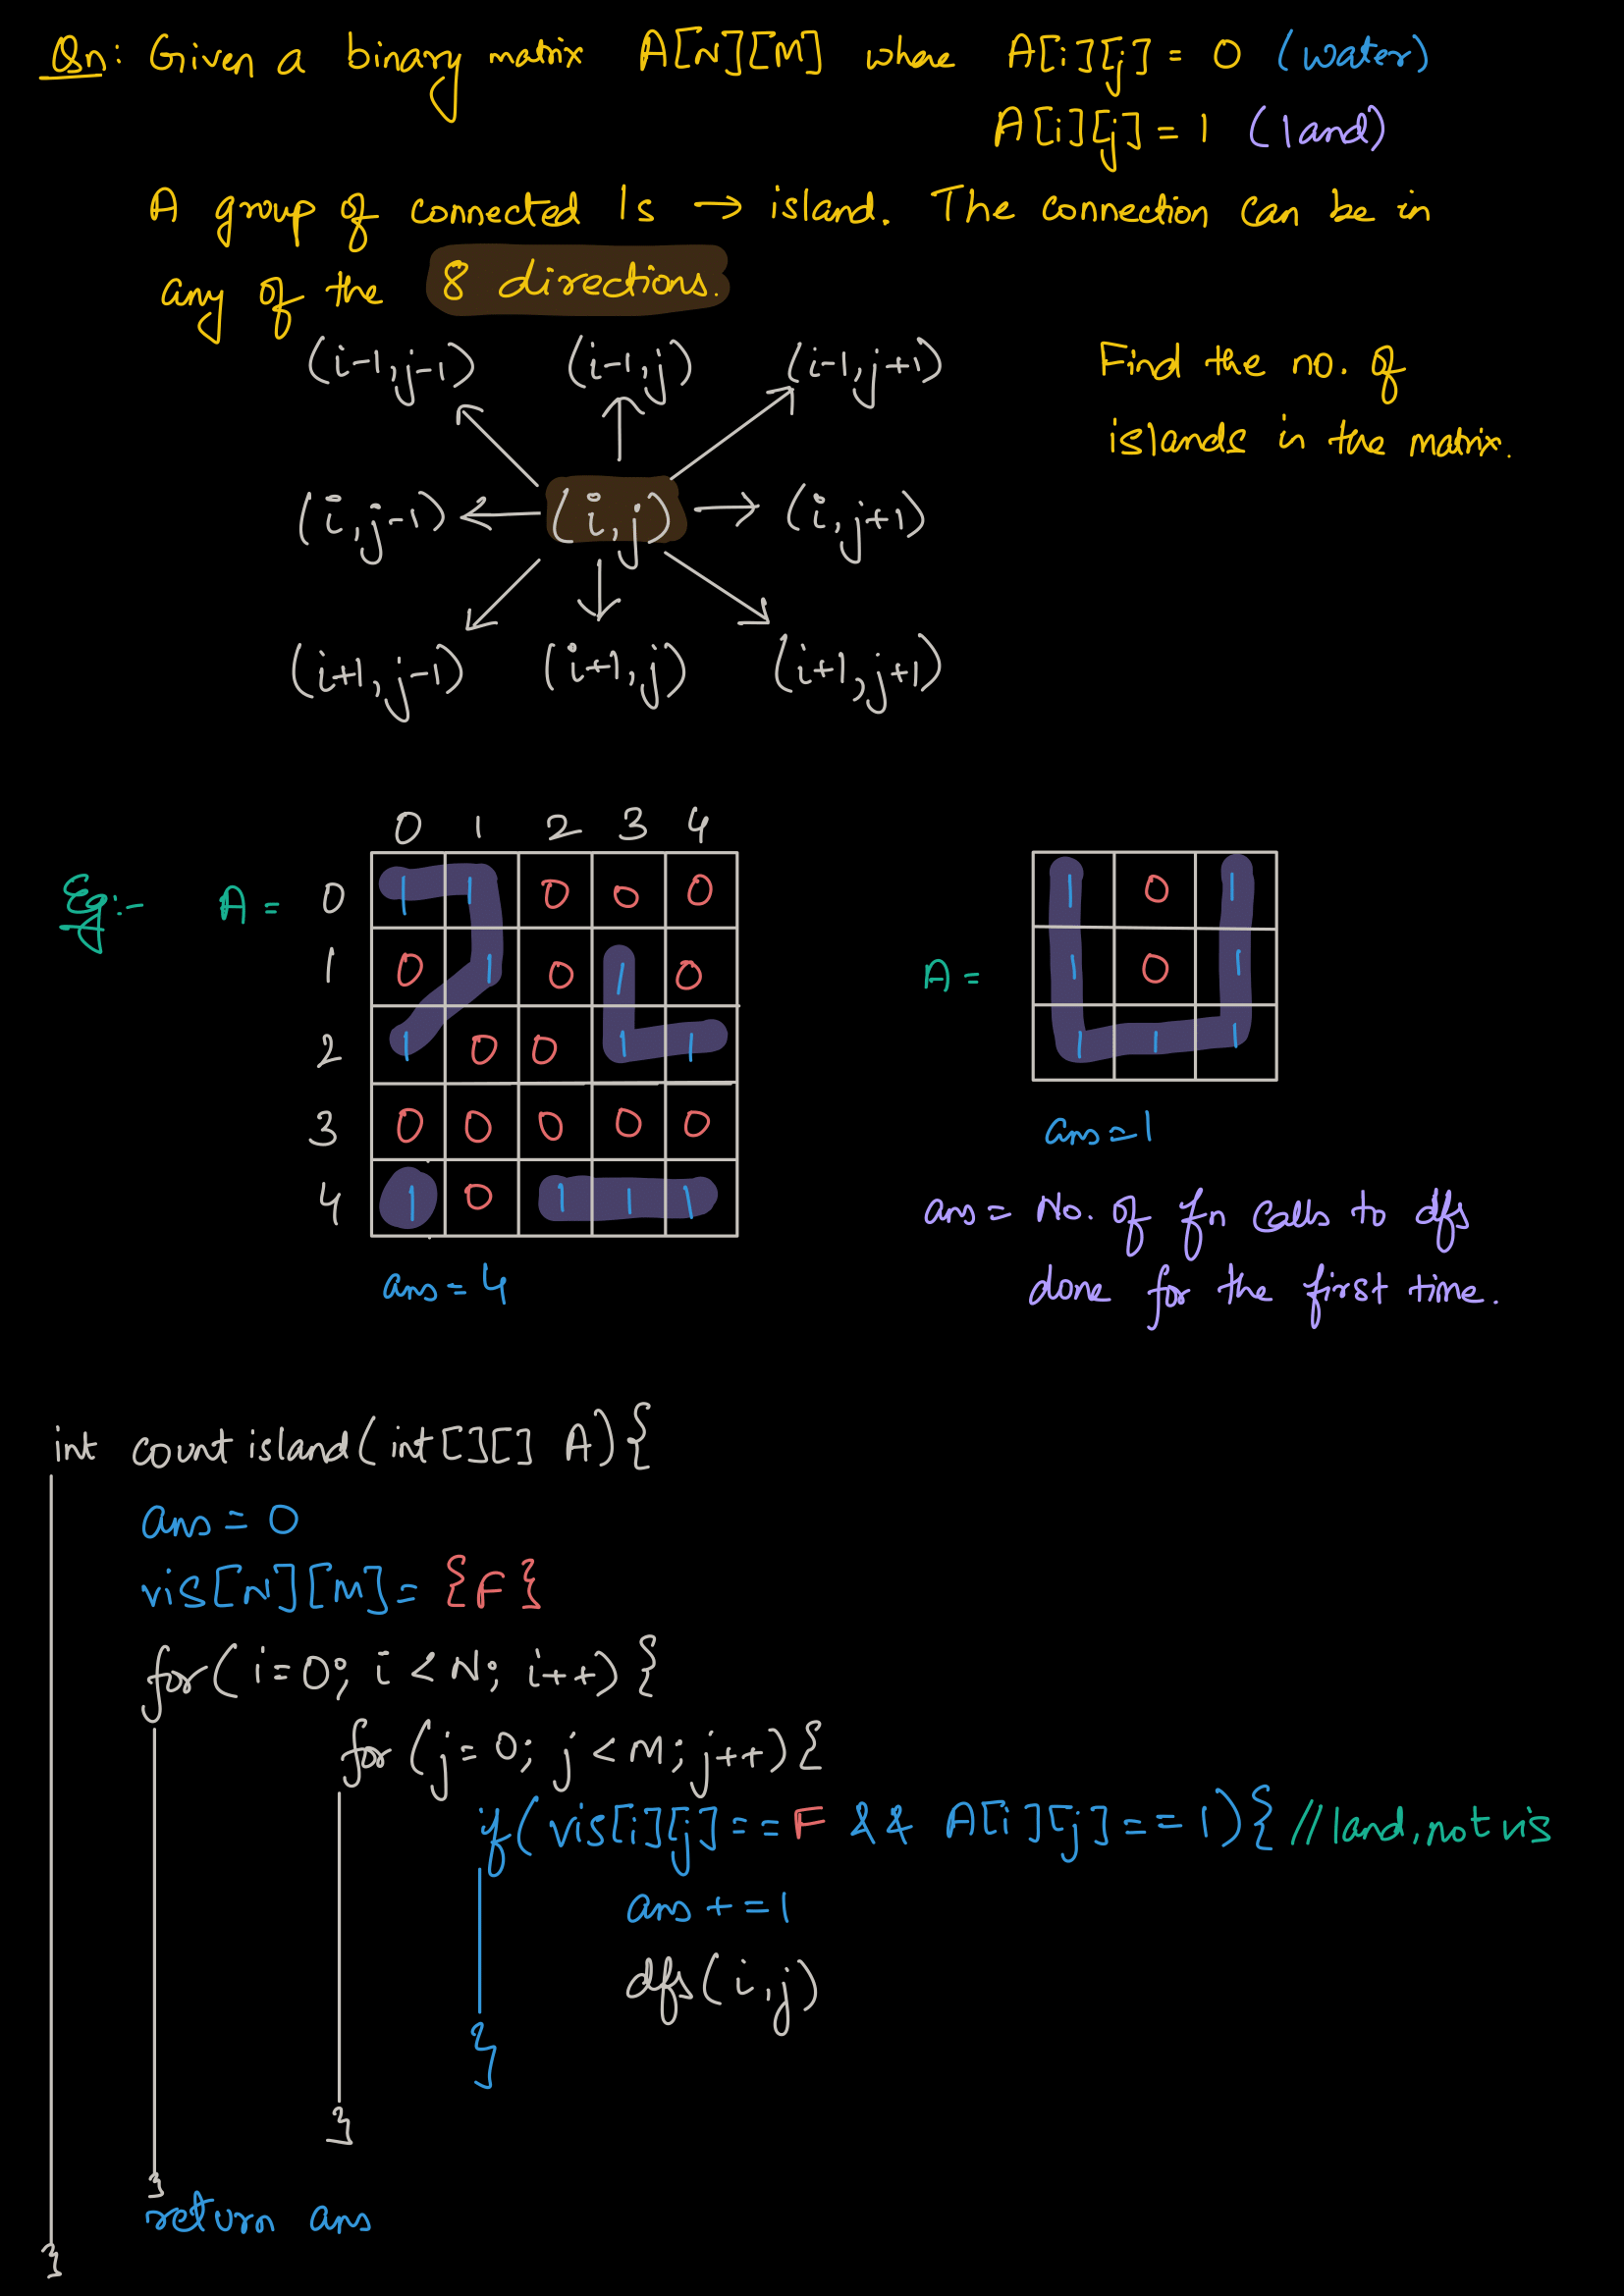 Qn: Given a binary matrix A[N][M] where A[i][j] = 0 (water)
A[i][j] = 1 (land)
A group of connected 1s → island. The connection can be in
any of the 8 directions.
(i-1,j-1) (i-1,j) (i-1,j+1)
Find the no. of
islands in the matrix.
(i,j-1) (i,j) (i,j+1)
(i+1,j-1) (i+1,j) (i+1,j+1)
0 1 2 3 4
Eg:- A = 0 1 1 0 0 0
1 0 1 0 1 0
2 1 0 0 1 1
3 0 0 0 0 0
4 1 0 1 1 1
ans = 4
A =
1 0 1
1 0 1
1 1 1
ans = 1
ans = No. of fn calls to dfs
done for the first time.
int countisland(int[][] A){
ans = 0
vis[N][M] = {F}
for(i=0; i<N; i++){
for(j=0; j<M; j++){
if(vis[i][j]==F && A[i][j]==1){ //land, not vis
ans +=1
dfs(i,j)
}
}
}
return ans
}